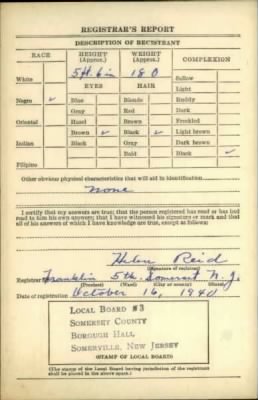 REGISTRAR'S REPORT
DESCRIPTION OF REGISTRANT
RACE HEIGHT (Approx.) WEIGHT (Approx.) COMPLEXION
5 ft. 6 in 180
White Sallow
EYES HAIR Light
Negro ✓ Blue Blonde Ruddy
Gray Red Dark
Oriental Hazel Brown Freckled
Brown ✓ Black ✓ Light brown
Indian Black Gray Dark brown
Bald Black ✓
Filipino
Other obvious physical characteristics that will aid in identification
none
I certify that my answers are true; that the person registered has read or has had
read to him his own answers; that I have witnessed his signature or mark and that
all of his answers of which I have knowledge are true, except as follows:
Helen Reid
(Signature of registrar)
Registrar for Franklin 5th Somerset N.J.
(Precinct) (Ward) (City or county) (State)
Date of registration October 16, 1940
LOCAL BOARD #3
SOMERSET COUNTY
BOROUGH HALL
SOMERVILLE, NEW JERSEY
(STAMP OF LOCAL BOARD)
(The stamp of the Local Board having jurisdiction of the registrant
shall be placed in the above space.)